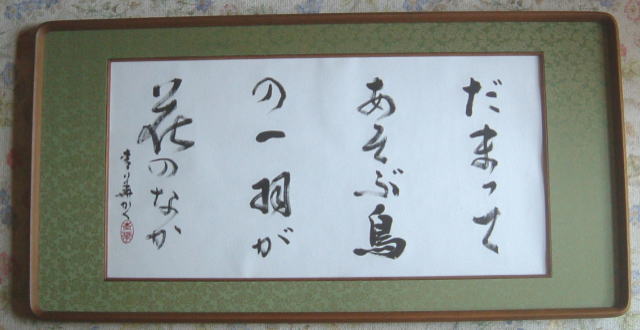 だまって
あそぶ鳥
の一羽が
花のなか